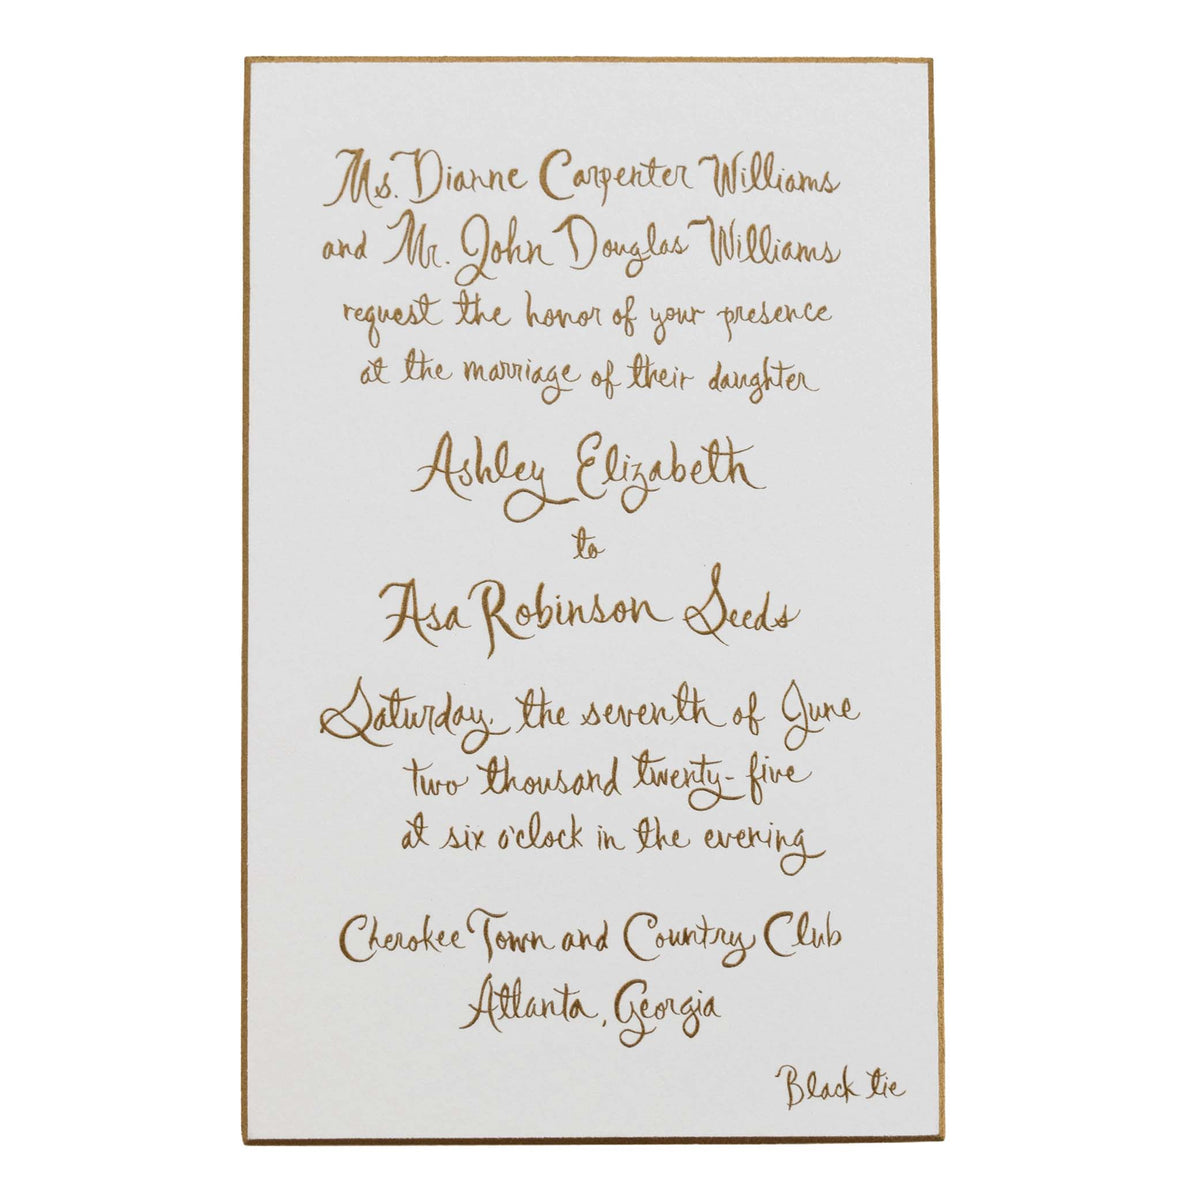 Ms. Dianne Carpenter Williams
and Mr. John Douglas Williams
request the honor of your presence
at the marriage of their daughter
Ashley Elizabeth
to
Asa Robinson Seeds
Saturday, the seventh of June
two thousand twenty-five
at six o'clock in the evening
Cherokee Town and Country Club
Atlanta, Georgia
Black tie